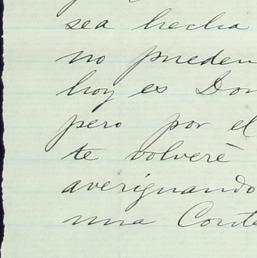 sea hecha
no pueden
hoy es Dom
pero por el
te volveré
averiguando
una Conte